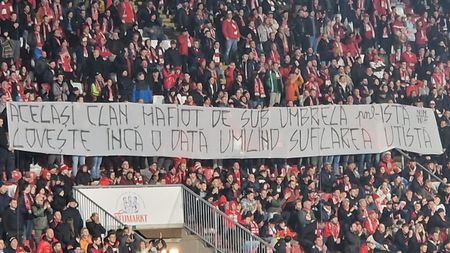 ACELASI CLAN MAFIOT DE SUB UMBRELA psd-ISTA
LOVESTE INCĂ O DATĂ UMILIND SUFLAREA UTISTĂ
TUMARKT